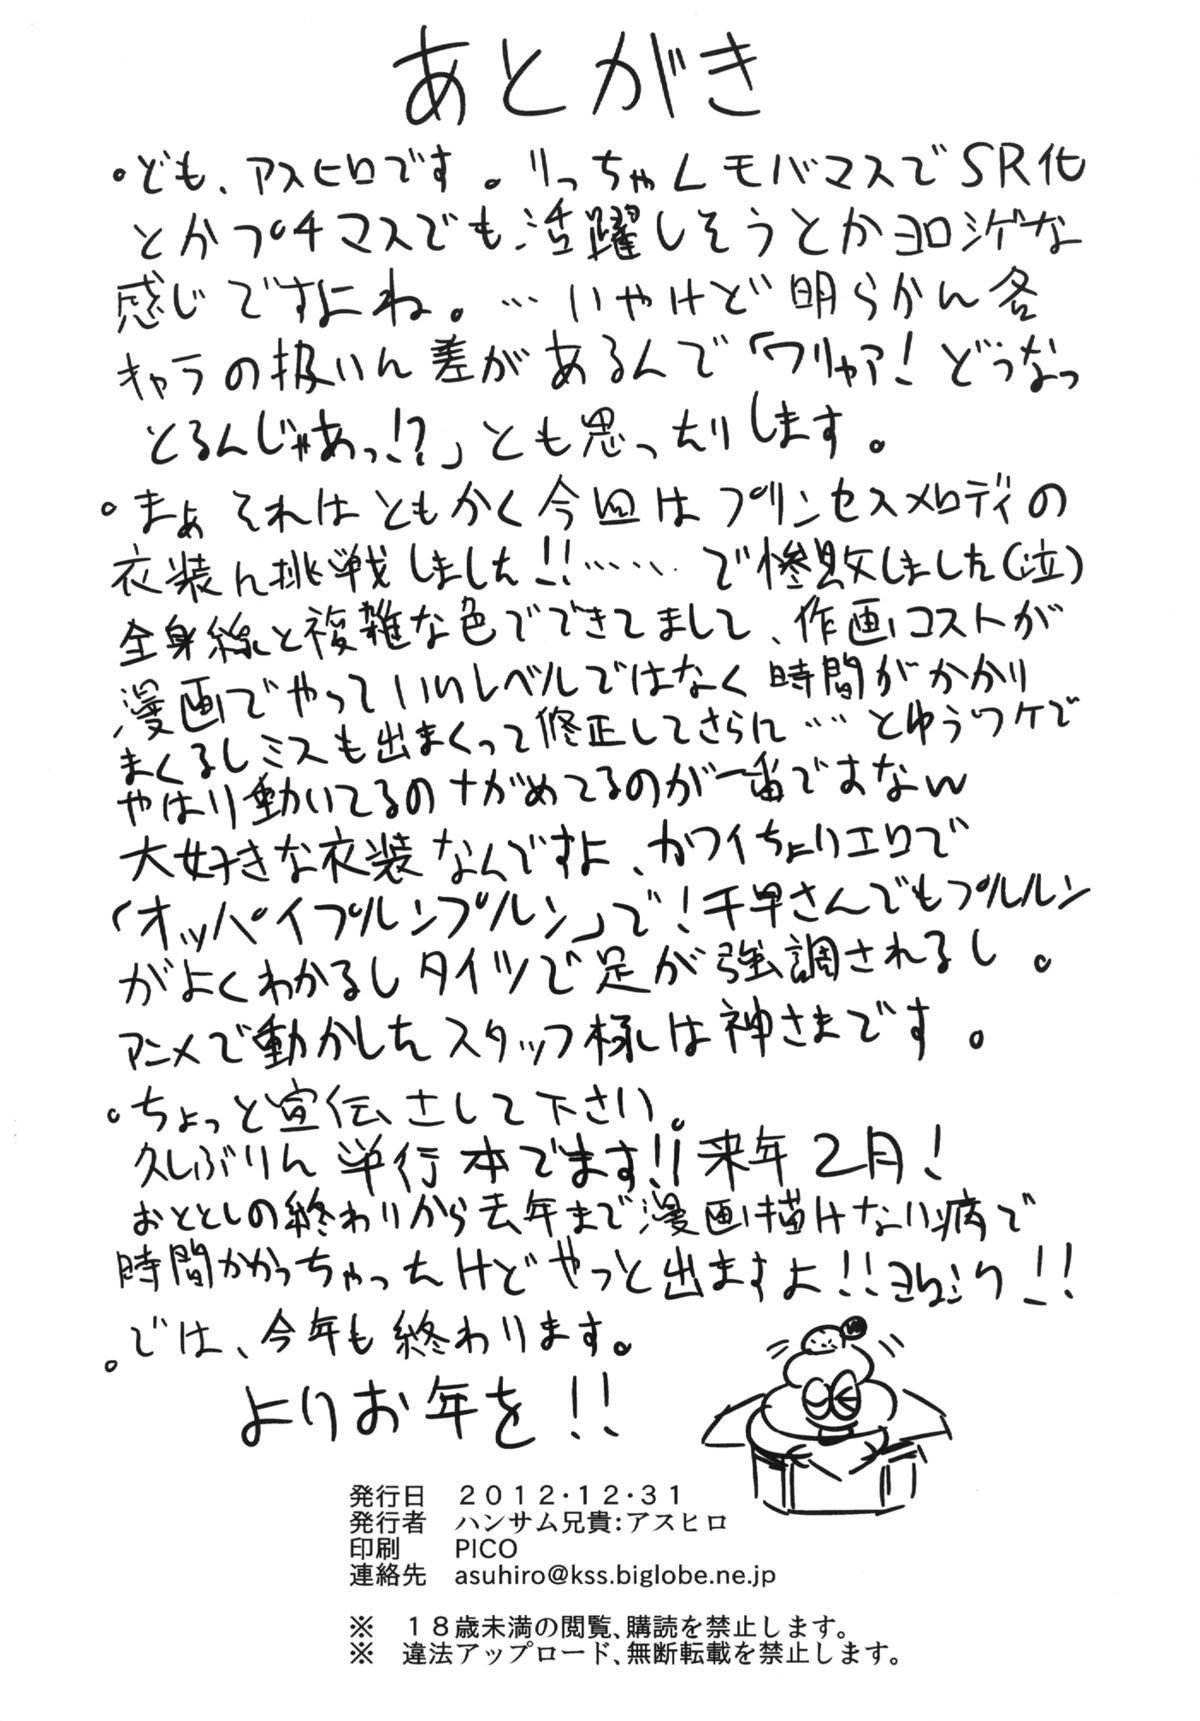 あとがき
。ども、アスヒロです。りっちゃんモバマスでSR化
とかプチマスでも活躍しそうとかヨロシゲな
感じですよね。…いやけど明らかに各
キャラの扱いに差があるんで「ワリャア!どうなっ
とるんじゃあっ!?」とも思ったりします。
。まぁそれはともかく今回はプリンセスメロディの
衣装に挑戦しました!!……で惨敗しました(泣)
全身線と複雑な色でできてまして、作画コストが
漫画でやっていいレベルではなく時間がかかり
まくるしミスも出まくって修正してさらに……とゆうワケで
やはり動いてるのナがめてるのが一番ですなw
大好きな衣装なんですよ、カワイイよりエロで
「オッパイプルンプルン」で!千早さんでもプルルン
がよくわかるしタイツで足が強調されるし。
アニメで動かしたスタッフ様は神さまです。
。ちょっと宣伝さして下さい。
久しぶりに単行本でます!!来年2月!
おととしの終わりから去年まで漫画描けない病で
時間かかっちゃったけどやっと出ますよ!!ヨロシク!!
。では、今年も終わります。
よいお年を!!
発行日 2012・12・31
発行者 ハンサム兄貴:アスヒロ
印刷 PICO
連絡先 asuhiro@kss.biglobe.ne.jp
※ 18歳未満の閲覧、購読を禁止します。
※ 違法アップロード、無断転載を禁止します。